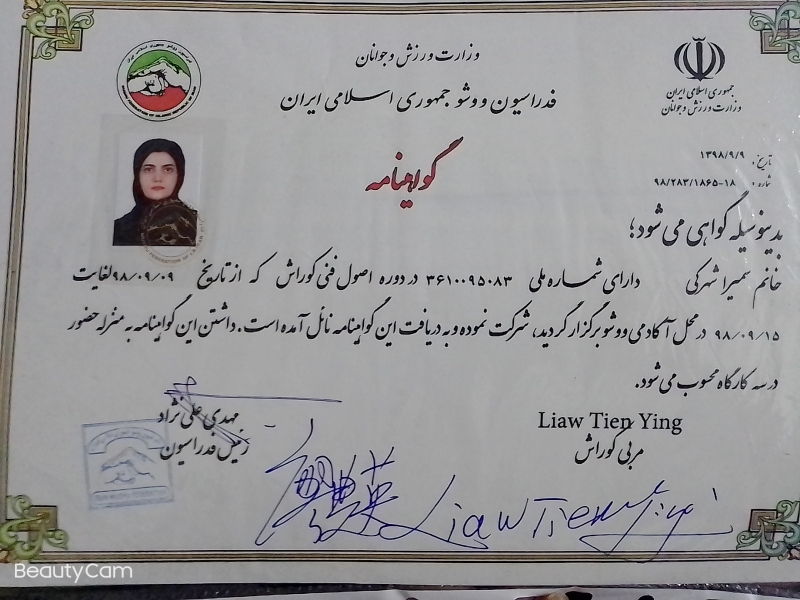 وزارت ورزش و جوانان
فدراسیون ووشو جمهوری اسلامی ایران
جمهوری اسلامی ایران
وزارت ورزش و جوانان
تاریخ: ۱۳۹۸/۹/۹
شماره: ۹۸/۲۸۳/۱۸۶۵-۱۸
گواهینامه
بدینوسیله گواهی می شود؛
خانم سمیرا شهرکی دارای شماره ملی ۳۶۱۰۰۹۵۰۸۳ در دوره اصول فنی کوراش که از تاریخ ۹۸/۰۹/۰۹ لغایت
۹۸/۰۹/۱۵ در محل آکادمی ووشو برگزار گردید، شرکت نموده و به دریافت این گواهینامه نائل آمده است. داشتن این گواهینامه به منزله حضور
در سه کارگاه محسوب می شود.
Liaw Tien Ying
مربی کوراش
مهدی علی نژاد
رئیس فدراسیون
Liaw Tien Ying
BeautyCam